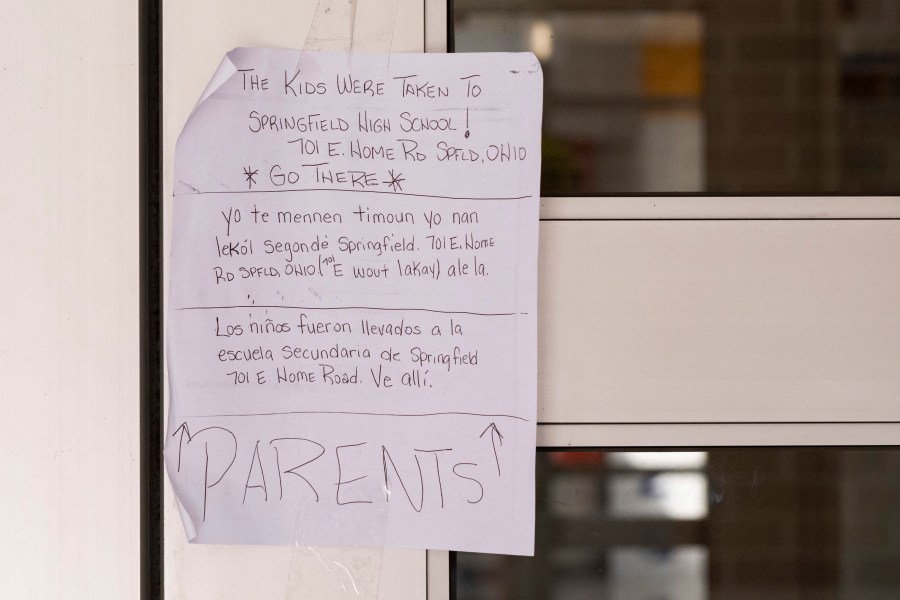 THE KIDS WERE TAKEN TO
SPRINGFIELD HIGH SCHOOL!
701 E. HOME RD SPFLD, OHIO
* GO THERE *
yo te mennen timoun yo nan
lekól segondè Springfield. 701 E. HOME
RD SPFLD, OHIO (701 E wout lakay) ale la.
Los niños fueron llevados a la
escuela secundaria de Springfield
701 E. HOME Road. Ve allí.
↑ PARENTS ↑